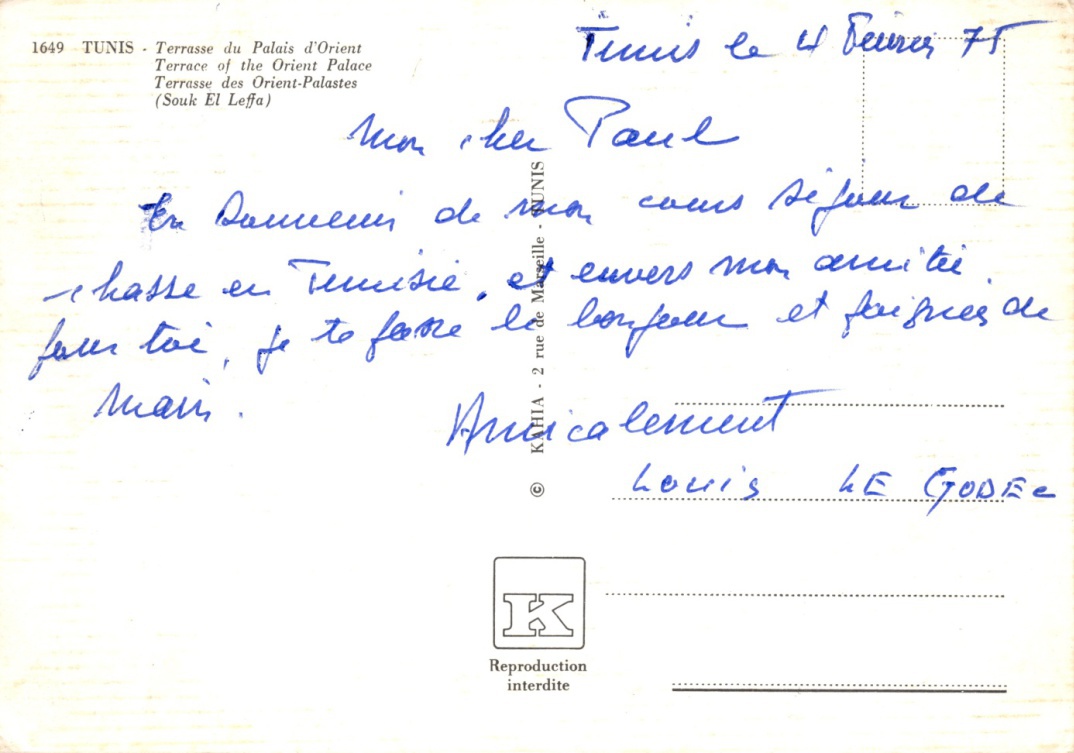 1649 TUNIS - Terrasse du Palais d'Orient
Terrace of the Orient Palace
Terrasse des Orient-Palastes
(Souk El Leffa)
Tunis le 4 Février 75
Mon cher Paul
En Souvenir de mon cours séjour de
chasse en Tunisie, et envers mon amitié
pour toi, je te passe le bonjour et poignées de
main.
Amicalement
Louis LE GODEC
© KAHIA - 2 rue de Marseille - TUNIS
K
Reproduction
interdite